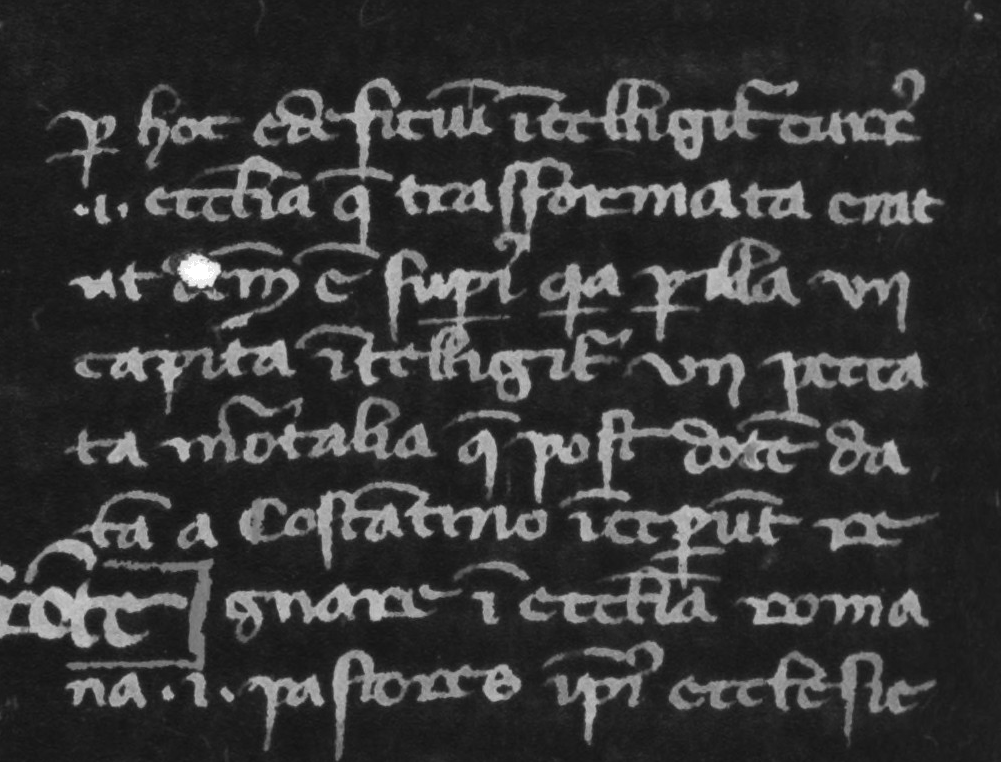 ꝑ hoc edeficiū ītelligit᷑ curr᾽
.i. eccl̄ia q̄ trasformata erat
ut ē supi᾽ q̢a ꝑ illa vii
capita ītelligit᷑ vii pecca
ta mōtalia q̄ post dotē da
tā a Costātino īceꝑūt re
gnare ī eccl̄ia roma
na .i. pastores ip̄i᾽ ecclesie